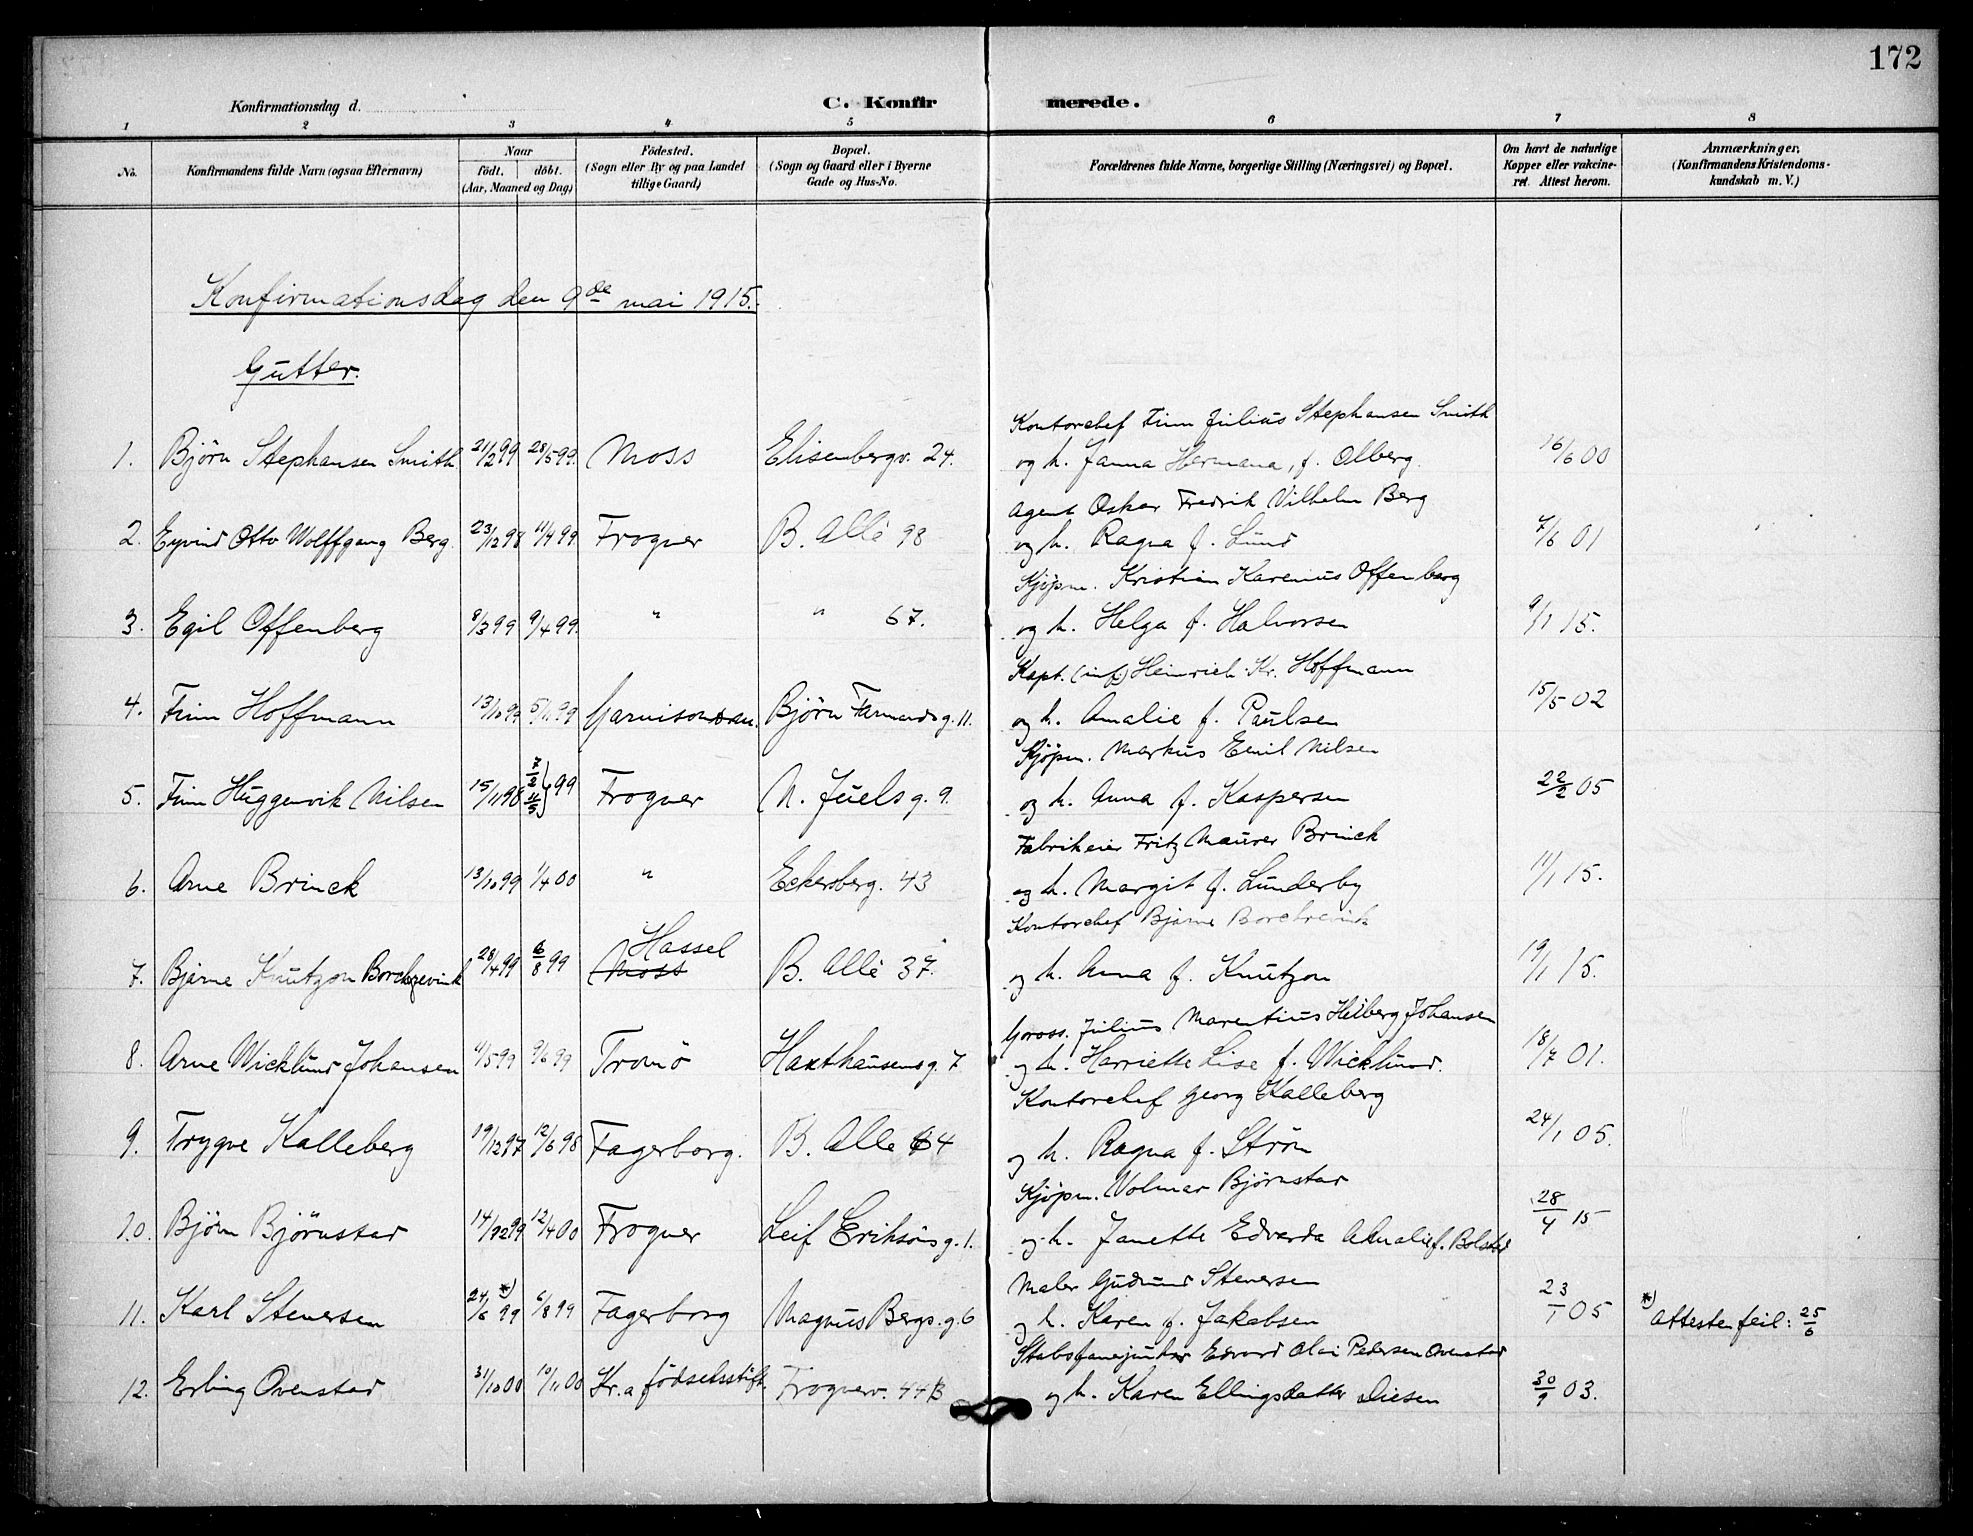 172
Konfirmationsdag d.
C. Konfirmerede.
1 2 3 4 5 6 7 8
No. Konfirmandens fulde Navn (ogsaa Efternavn) Naar født. døbt. (Aar, Maaned og Dag) Fødested. (Sogn eller By og paa Landet tillige Gaard) Bopæl. (Sogn og Gaard eller i Byerne Gade og Hus-No. Forældrenes fulde Navne, borgerlige Stilling (Næringsvei) og Bopæl. Om havt de naturlige Kopper eller vakcineret. Attest herom. Anmærkninger, (Konfirmandens Kristendomskundskab m. V.)
Konfirmationsdag den 9de mai 1915.
Gutter.
Kontorchef Finn Julius Stephansen Smith
1. Bjørn Stephansen Smith 21/2 99 28/5 99. Moss Elisenbergv. 24. og h. Janna Hermana, f. Alberg. 16/6 00
Agent Oskar Fredrik Vilhelm Berg
2. Eyvind Otto Wolffgang Berg. 23/12 98 11/4 99 Frogner B. Allé 98 og h. Ragna f. Lund 7/6 01
Kjøpm. Kristian Karenius Offenberg
3. Egil Offenberg 8/3 99 9/4 99. " " 67. og h. Helga f. Halvorsen 9/1 15.
Kapt. (inf.) Heinrich Kr. Hoffmann
4. Finn Hoffmann 13/10 99 5/11 99 Garnison Bjørn Farmandsg. 11. og h. Amalie f. Paulsen 15/5 02
Kjøpm. Markus Emil Nilsen
5. Finn Huggenvik Nilsen 15/11 98 99 Frogner N. Juels g. 9. og h. Anna f. Kaspersen 22/2 05
Fabrikeier Fritz Maurer Brinck
6. Arne Brinck 13/10 99 1/4 00 " Eckersberg. 43 og h. Margit f. Lunderby 11/1 15.
Kontorchef Bjarne Borchrevink
Hassel
7. Bjarne Knutzon Borchgrevink 28/4 99 6/8 99 Moss B. Allé 37. og h. Anna f. Knutzon 19/1 15.
Gross. Julius Marentius Heiberg Johansen
8. Arne Wicklund Johansen 11/5 99 9/6 99 Tromö Haxthausensg. 7 og h. Harriette Lise f. Wicklund. 18/7 01.
Kontorchef Georg Kalleberg
9. Trygve Kalleberg 19/12 97 12/6 98 Fagerborg. B. Alle 64 og h. Ragna f. Strøm 24/1 05.
Kjøpm. Volmar Bjørnstad
10. Bjørn Bjørnstad 14/12 99 12/4 00 Frogner Leif Eriksøns g. 1. og h. Janette Edvarda Amalie f. Bolstad 28/4 15
Maler Gudmund Stenersen
11. Karl Stenersen 24/6 99 *) 6/8 99 Fagerborg Magnus Bergs. g. 6 og h. Karen f. Jakobsen 23/1 05 *) Attesten feil: 25/6
Stabsfanejunker Edvard Olai Pedersen Ovenstad
12. Erling Ovenstad 31/10 00 10/11 00 Kr.a fødselsstift. Frognerv. 44B og h. Karen Ellingsdatter Diesen 30/9 03.